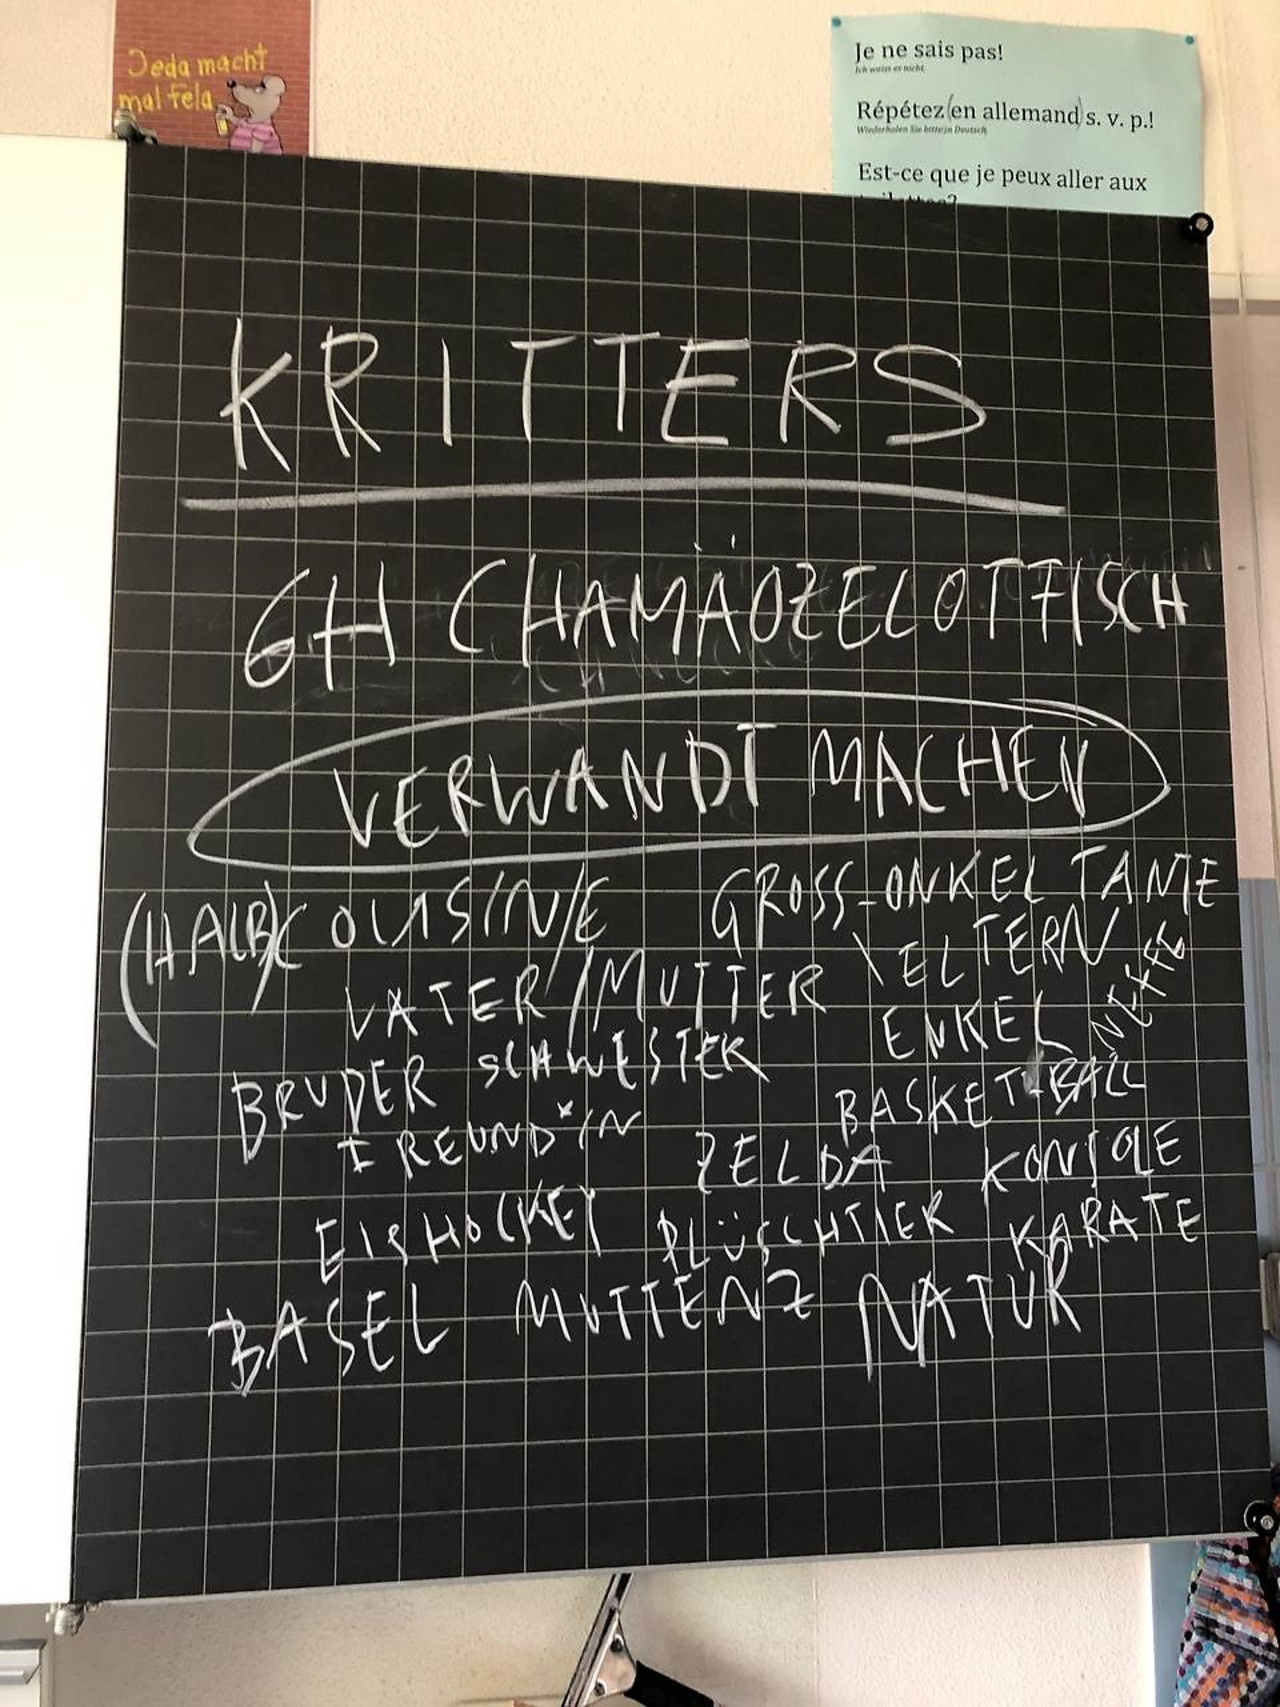 Jeda macht
mal Fela
Je ne sais pas!
Ich weiss es nicht.
Répétez (en allemand) s. v. p.!
Wiederholen Sie bitte in Deutsch.
Est-ce que je peux aller aux
toilettes?
KRITTERS
6H CHAMÄOZELOTTFISCH
VERWANDT MACHEN
(HALB)COUSIN/E GROSS-ONKEL TANTE
VATER/MUTTER \ELTERN NEFFE
BRUDER SCHWESTER ENKEL
FREUND*IN BASKETBALL
ZELDA KONSOLE
EISHOCKEY PLÜSCHTIER KARATE
BASEL MUTTENZ NATUR